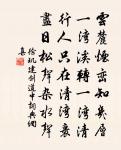 雲麓煙巒知幾層
一灣溪轉一灣清
行人只在清灣裏
盡日松聲雜水聲
徐璣建劍道中詞典網
集